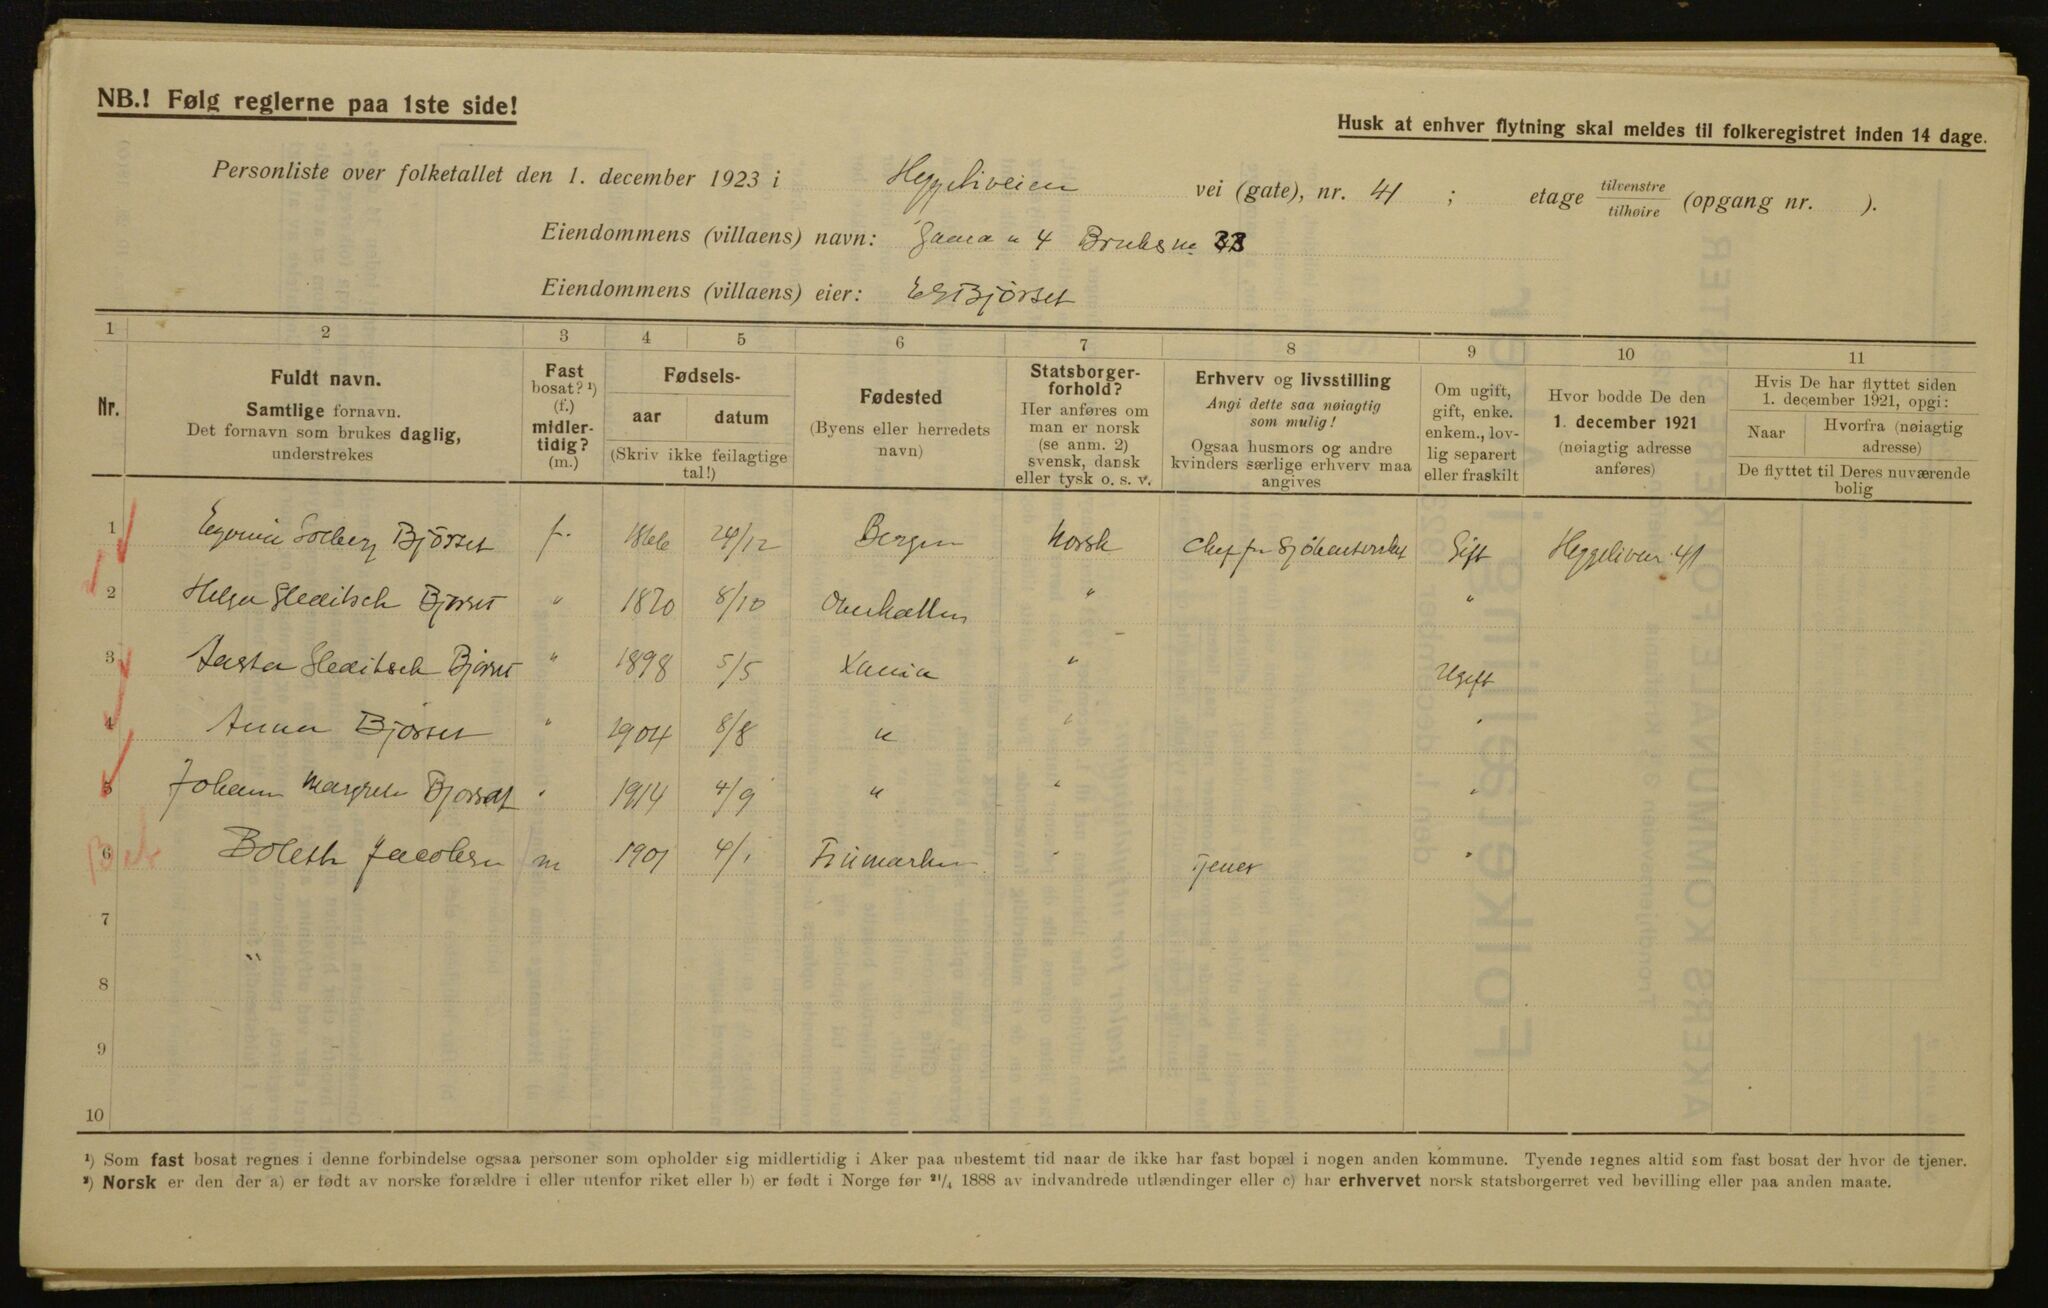 NB.! Følg reglerne paa 1ste side!
Husk at enhver flytning skal meldes til folkeregistret inden 14 dage.
Personliste over folketallet den 1. december 1923 i Heggeliveien vei (gate), nr. 41 ; etage tilvenstre tilhøire (opgang nr. ).
Eiendommens (villaens) navn: 4 Bruksnr 33
Eiendommens (villaens) eier: E S Bjørset
1 2 3 4 5 6 7 8 9 10 11
Nr. Fuldt navn. Samtlige fornavn. Det fornavn som brukes daglig, understrekes
Fast bosat? ¹) (f.) midler-tidig? (m.)
Fødsels- aar datum (Skriv ikke feilagtige tal!)
Fødested (Byens eller herredets navn)
Statsborger-forhold? Her anføres om man er norsk (se anm. 2) svensk, dansk eller tysk o. s. v.
Erhverv og livsstilling Angi dette saa nøiagtig som mulig! Ogsaa husmors og andre kvinders særlige erhverv maa angives
Om ugift, gift, enke. enkem., lov-lig separert eller fraskilt
Hvor bodde De den 1. december 1921 (nøiagtig adresse anføres)
Hvis De har flyttet siden 1. december 1921, opgi: Naar Hvorfra (nøiagtig adresse) De flyttet til Deres nuværende bolig
1 Solberg Bjørset f. 1866 24/12 Bergen Norsk Chef for Gift Heggeliveien 41
2 Helga Gleditsch Bjørset " 1870 8/10 " "
3 Aasta Gleditsch Bjørset " 1898 5/5 Xania " Ugift
4 Anna Bjørset " 1904 8/8 " " "
5 Johanne Margrete Bjørset " 1914 4/9 " " "
6 Boleth Jacobsen m 1901 4/1 Finmarken " Tjener "
7
8
9
10
¹) Som fast bosat regnes i denne forbindelse ogsaa personer som opholder sig midlertidig i Aker paa ubestemt tid naar de ikke har fast bopæl i nogen anden kommune. Tyende regnes altid som fast bosat der hvor de tjener.
²) Norsk er den der a) er født av norske forældre i eller utenfor riket eller b) er født i Norge før 21/4 1888 av indvandrede utlændinger eller c) har erhvervet norsk statsborgerret ved bevilling eller paa anden maate.